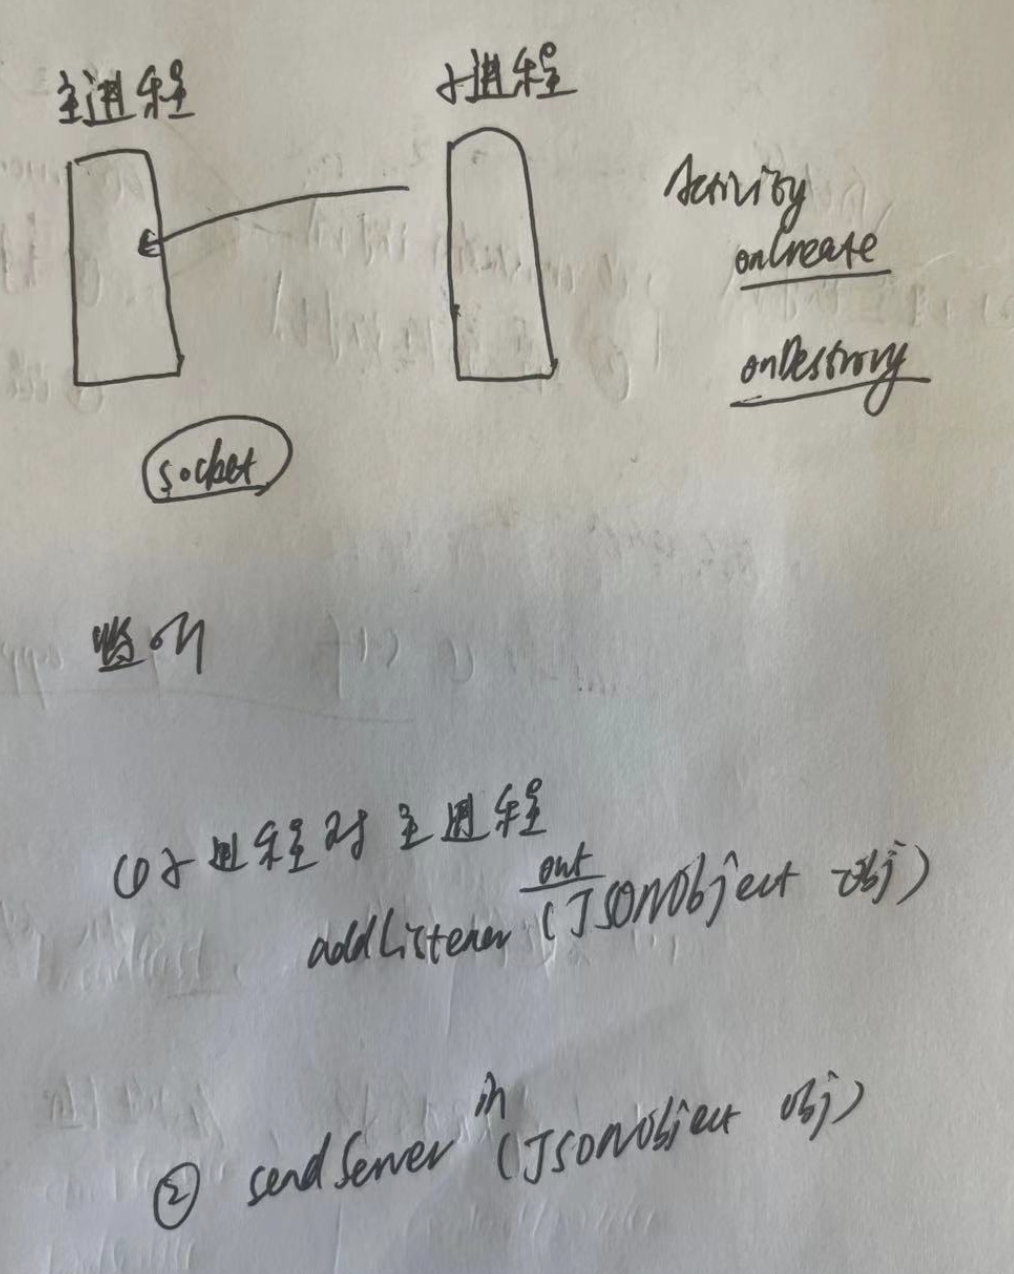 主进程
子进程
Activity
onCreate
onDestrory
socket
监听
(1)子进程对主进程
out
addListener (JSONObject obj)
in
② sendServer (JSONObject obj)